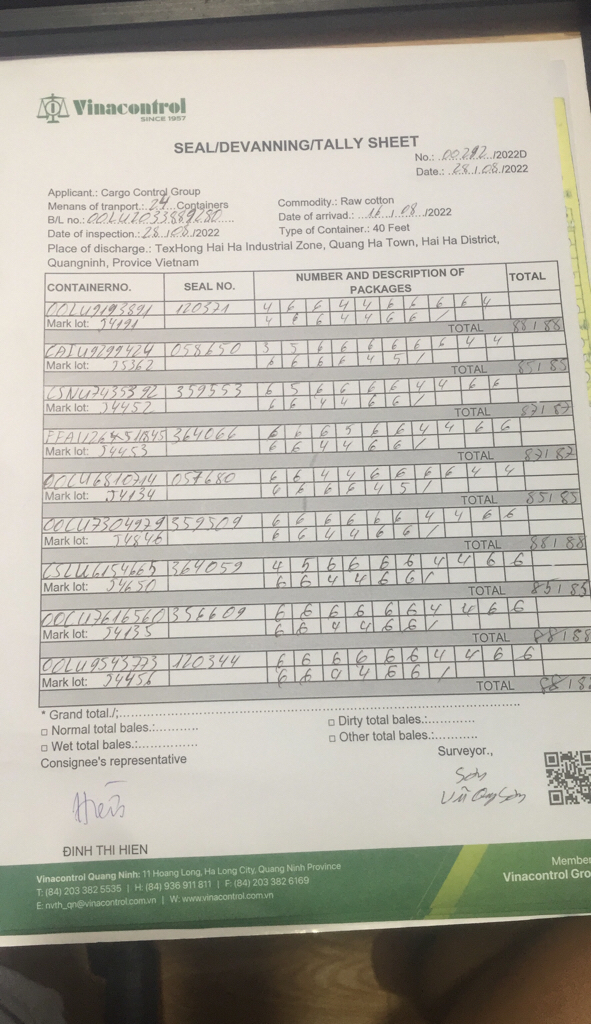 Vinacontrol
SINCE 1957
SEAL/DEVANNING/TALLY SHEET
No.: 00292 /2022D
Date.: 28/08/2022
Applicant.: Cargo Control Group
Menans of tranport.: 24 Containers
Commodity.: Raw cotton
B/L no.: OOLU2033889280
Date of arrivad.: 16/08/2022
Date of inspection.: 28/08/2022
Type of Container.: 40 Feet
Place of discharge.: TexHong Hai Ha Industrial Zone, Quang Ha Town, Hai Ha District,
Quangninh, Provice Vietnam
CONTAINERNO. SEAL NO. NUMBER AND DESCRIPTION OF PACKAGES TOTAL
OOLU9193891 120371
Mark lot: J4191
TOTAL 88/88
CAIU9299424 058650 3 5 6 6 6 6 6 6 4 4
Mark lot: J5362 6 6 6 6 4 5 /
TOTAL 85/85
CSNU7435392 359553 6 5 6 6 6 6 4 4 6 6
Mark lot: J4452 6 6 4 4 6 6 /
TOTAL 87/87
364066 6 6 6 5 6 6 4 4 6 6
Mark lot: J4453 6 6 4 4 6 6 /
TOTAL 87/87
OOCU6810714 057680 6 6 4 4 6 6 6 6 4 4
Mark lot: J4134 6 6 6 6 4 5 /
TOTAL 85/85
OOCU7304979 359509 6 6 6 6 6 6 4 4 6 6
Mark lot: J4846 6 6 4 4 6 6 /
TOTAL 88/88
CSLU6154665 364059 4 5 6 6 6 6 4 4 6 6
Mark lot: J4650 6 6 4 4 6 6 /
TOTAL 85/85
OOCU7616560 356609 6 6 6 6 6 6 4 4 6 6
Mark lot: J4135 6 6 4 4 6 6 /
TOTAL 88/88
OOLU9543773 120344 6 6 6 6 6 6 4 4 6 6
Mark lot: J4456 6 6 4 4 6 6 /
TOTAL 88/8
* Grand total./:
□ Normal total bales.: □ Dirty total bales.:
□ Wet total bales.: □ Other total bales.:
Consignee's representative Surveyor.,
Hiền Sơn
ĐINH THI HIEN
Vinacontrol Quang Ninh: 11 Hoang Long, Ha Long City, Quang Ninh Province
T: (84) 203 382 5535 | H: (84) 936 911 811 | F: (84) 203 382 6169
E: nvth_qn@vinacontrol.com.vn | W: www.vinacontrol.com.vn
Membe
Vinacontrol Gro